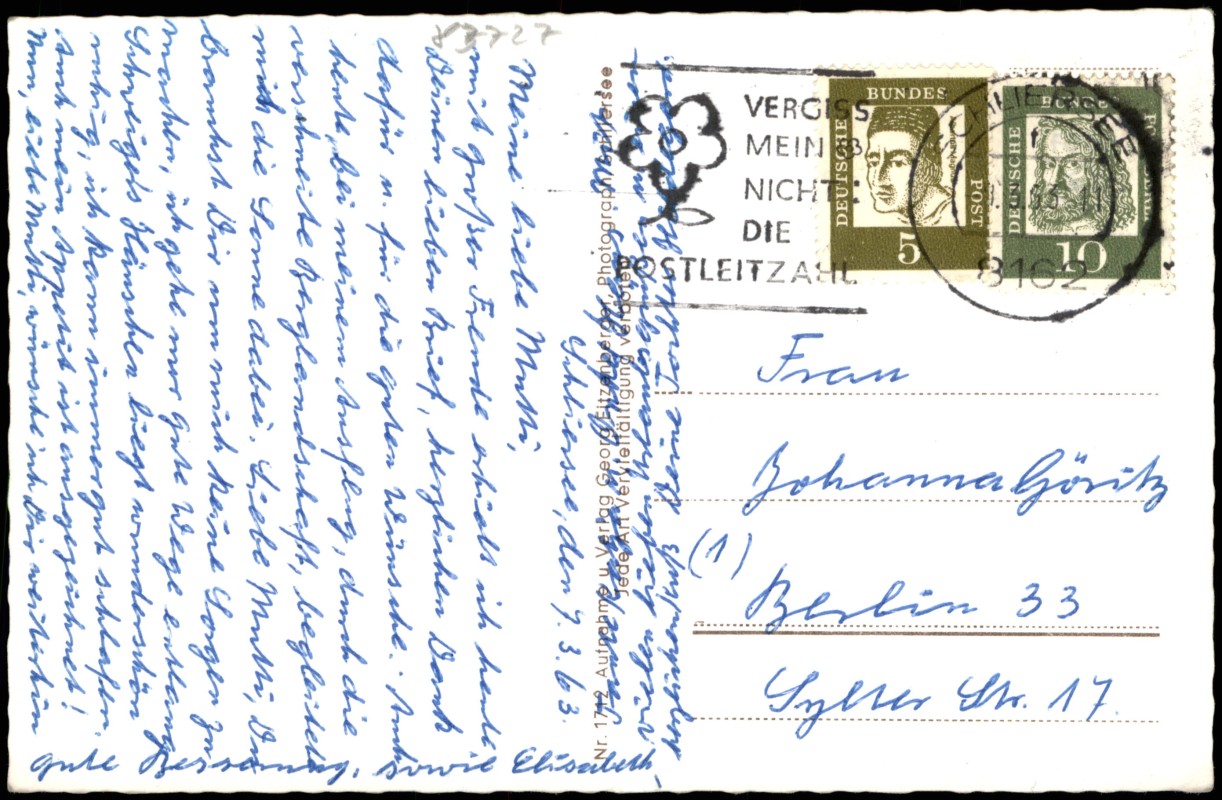 83727
Schliersee, den 9.3.63.
Meine liebe Mutti,
mit großer Freude erhielt ich heute
Deinen lieben Brief, herzlichen Dank
dafür u. für die guten Wünsche. Auch
heute, bei meinem Ausflug, durch die
verschneite Berglandschaft, begleitet
mich die Sonne dabei. Liebe Mutti, Du
brauchst Dir um mich keine Sorgen zu
machen, ich gehe nur gute Wege entlang
Schweigels Häuschen liegt wunderschön
ruhig, ich kann immer gut schlafen.
Auch mein Appetit ist ausgezeichnet!
Nun, siehe Mutti, wünsche ich Dir weiterhin
gute Besserung, sowie Elisabeth
Nr. 1712 Aufnahme u. Verlag Georg Eitzenberger, Photograph, Schliersee
Jede Art Vervielfältigung verboten
VERGISS
MEIN
NICHT:
DIE
POSTLEITZAHL
DEUTSCHE BUNDES POST
5
DEUTSCHE BUNDES POST
10
SCHLIERSEE
8162
Frau
Johanna Göritz
(1)
Berlin 33
Sylter Str. 17.